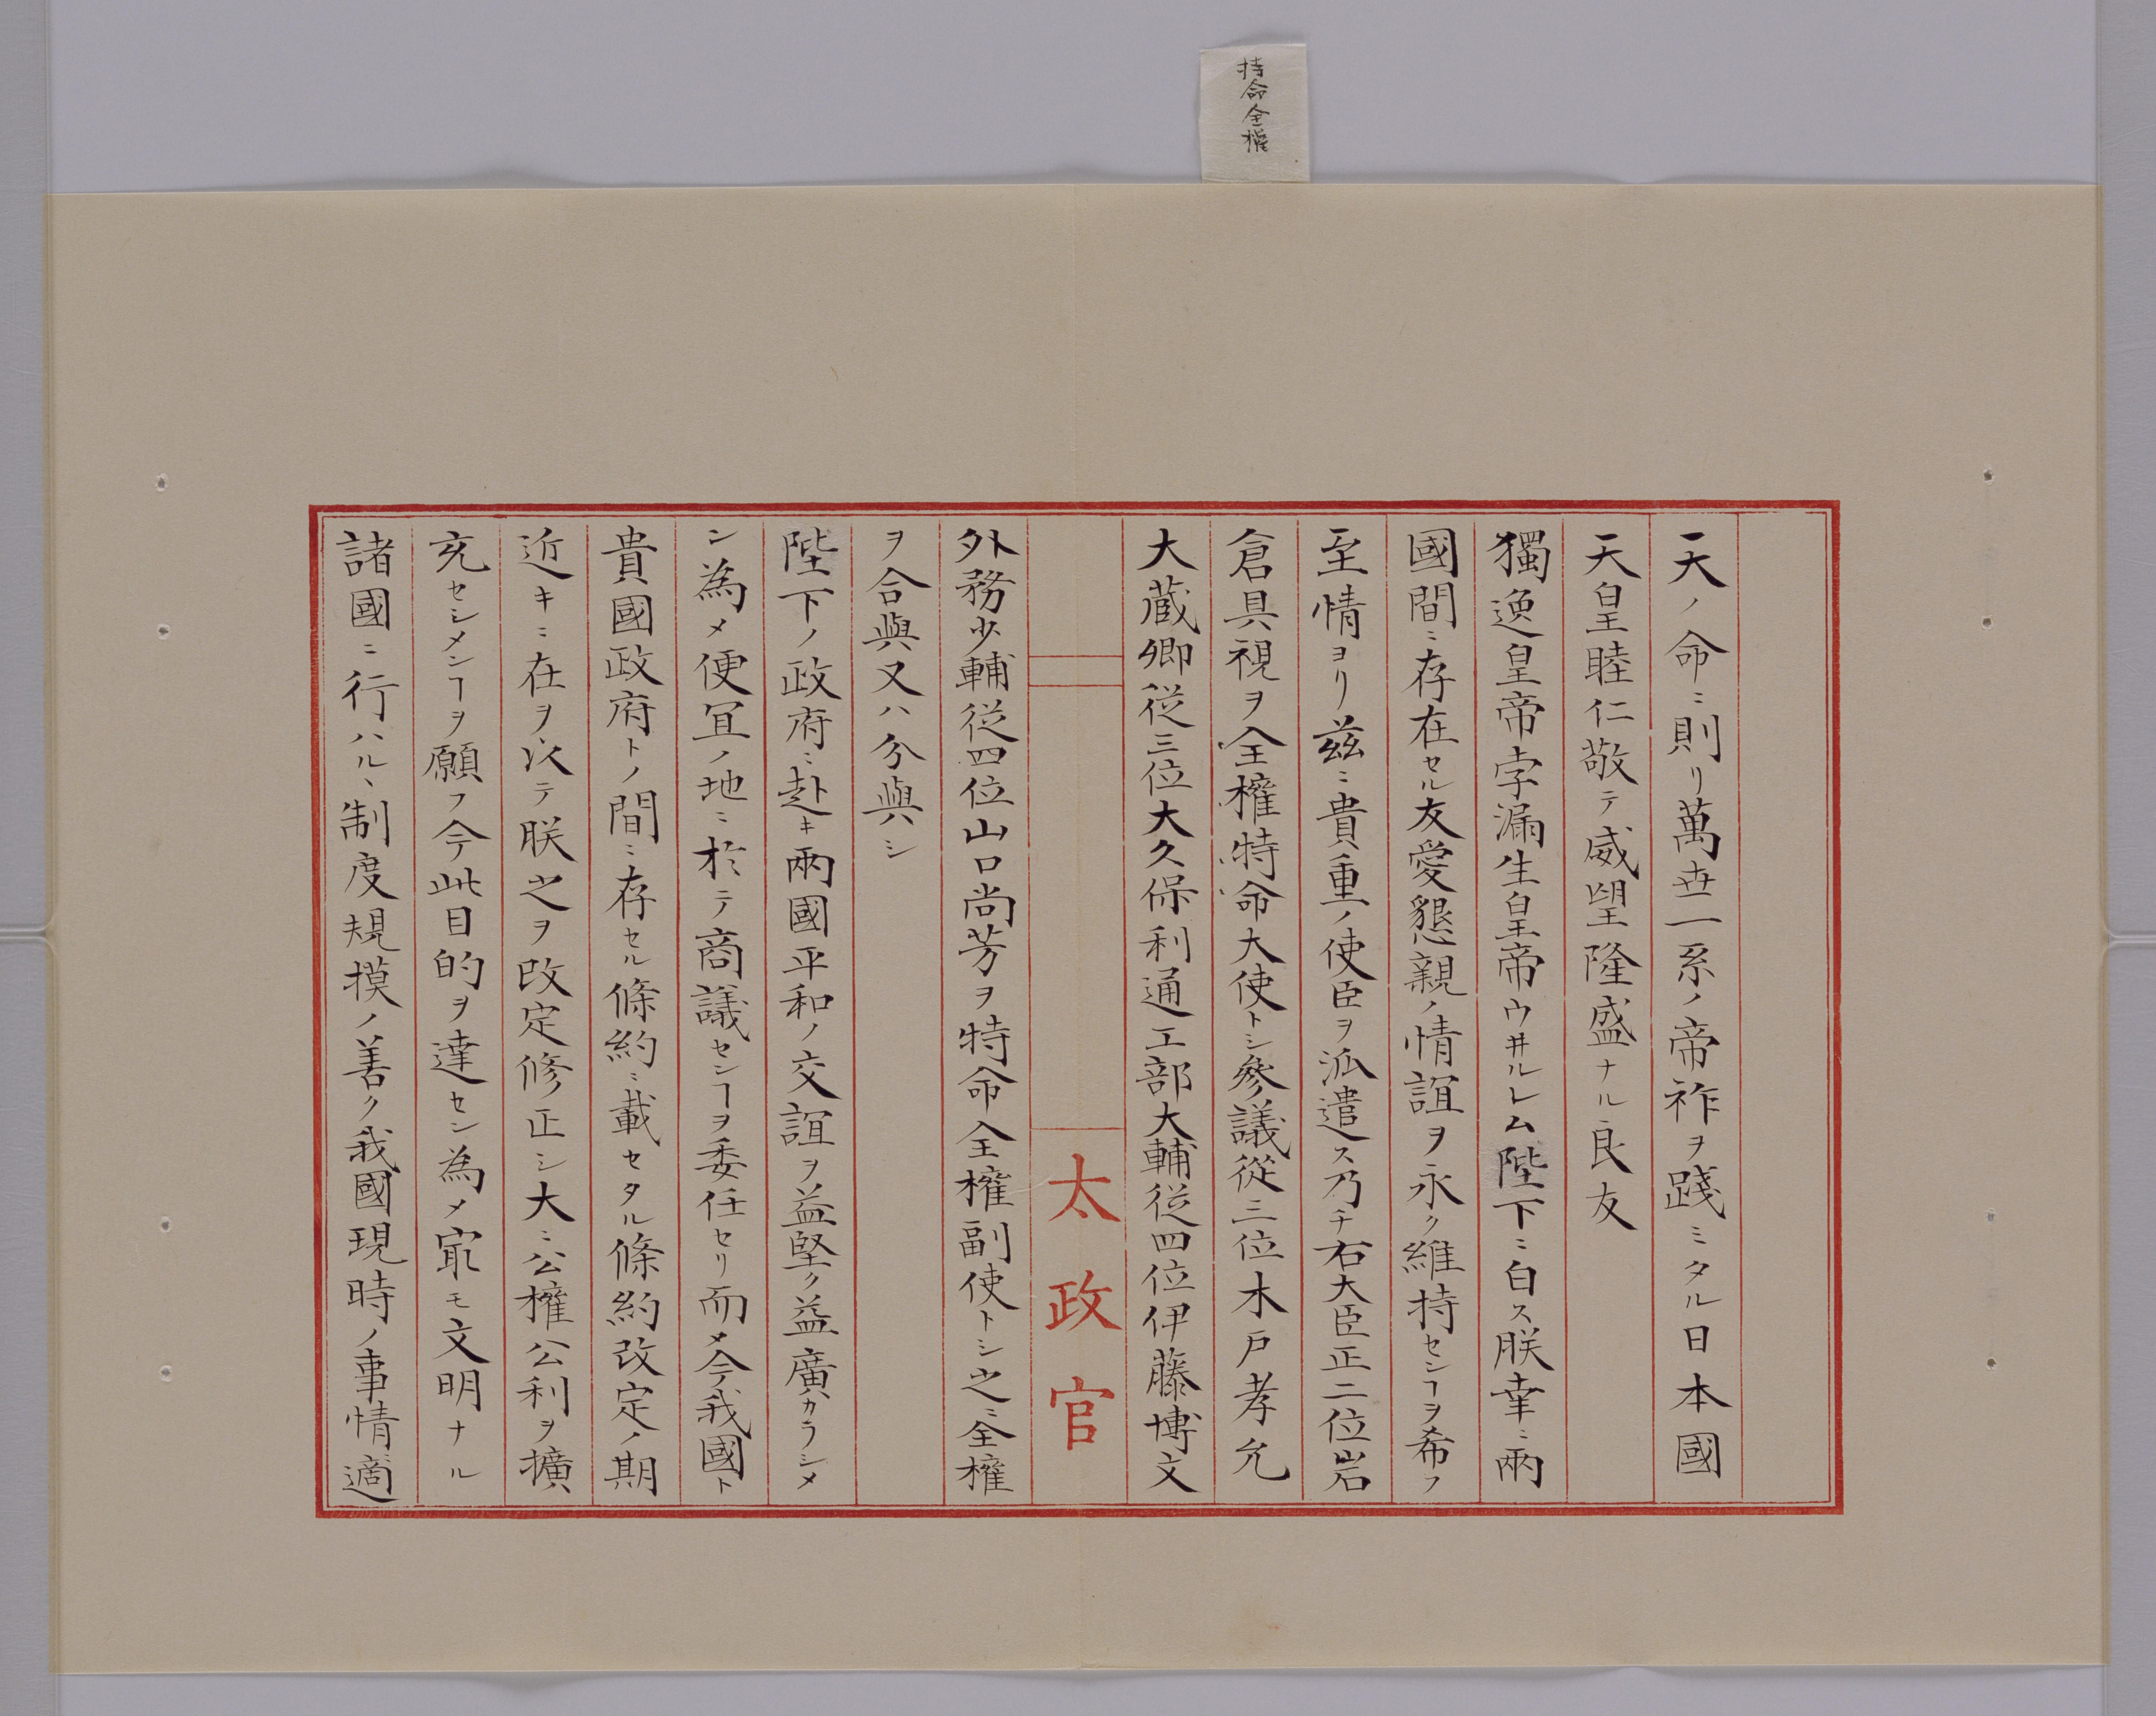 持命全權
天ノ命ニ則リ萬世一系ノ帝祚ヲ踐ミタル日本國
天皇睦仁敬テ威望隆盛ナル良友
獨逸皇帝孛漏生皇帝ウ井ルレム陛下ニ白ス朕幸ニ兩
國間ニ存在セル友愛懇親ノ情誼ヲ永ク維持センヿヲ希フ
至情ヨリ茲ニ貴重ノ使臣ヲ派遣ス乃チ右大臣正二位岩
倉具視ヲ全權特命大使トシ參議從三位木戸孝允
大蔵卿従三位大久保利通工部大輔従四位伊藤博文
太政官
外務少輔従四位山口尚芳ヲ特命全權副使トシ之ニ全權
ヲ合與又ハ分與シ
陛下ノ政府ニ赴キ兩國平和ノ交誼ヲ益堅ク益廣カラシメ
シ為メ便宜ノ地ニ於テ商議センヿヲ委任セリ而メ今我國ト
貴國政府トノ間ニ存セル條約ニ載セタル條約改定ノ期
近キニ在ヲ以テ朕之ヲ改定修正シ大ニ公權公利ヲ擴
充セシメンヿヲ願フ今此目的ヲ達セン為メ冣モ文明ナル
諸國ニ行ハルヽ制度規摸ノ善ク我國現時ノ事情適